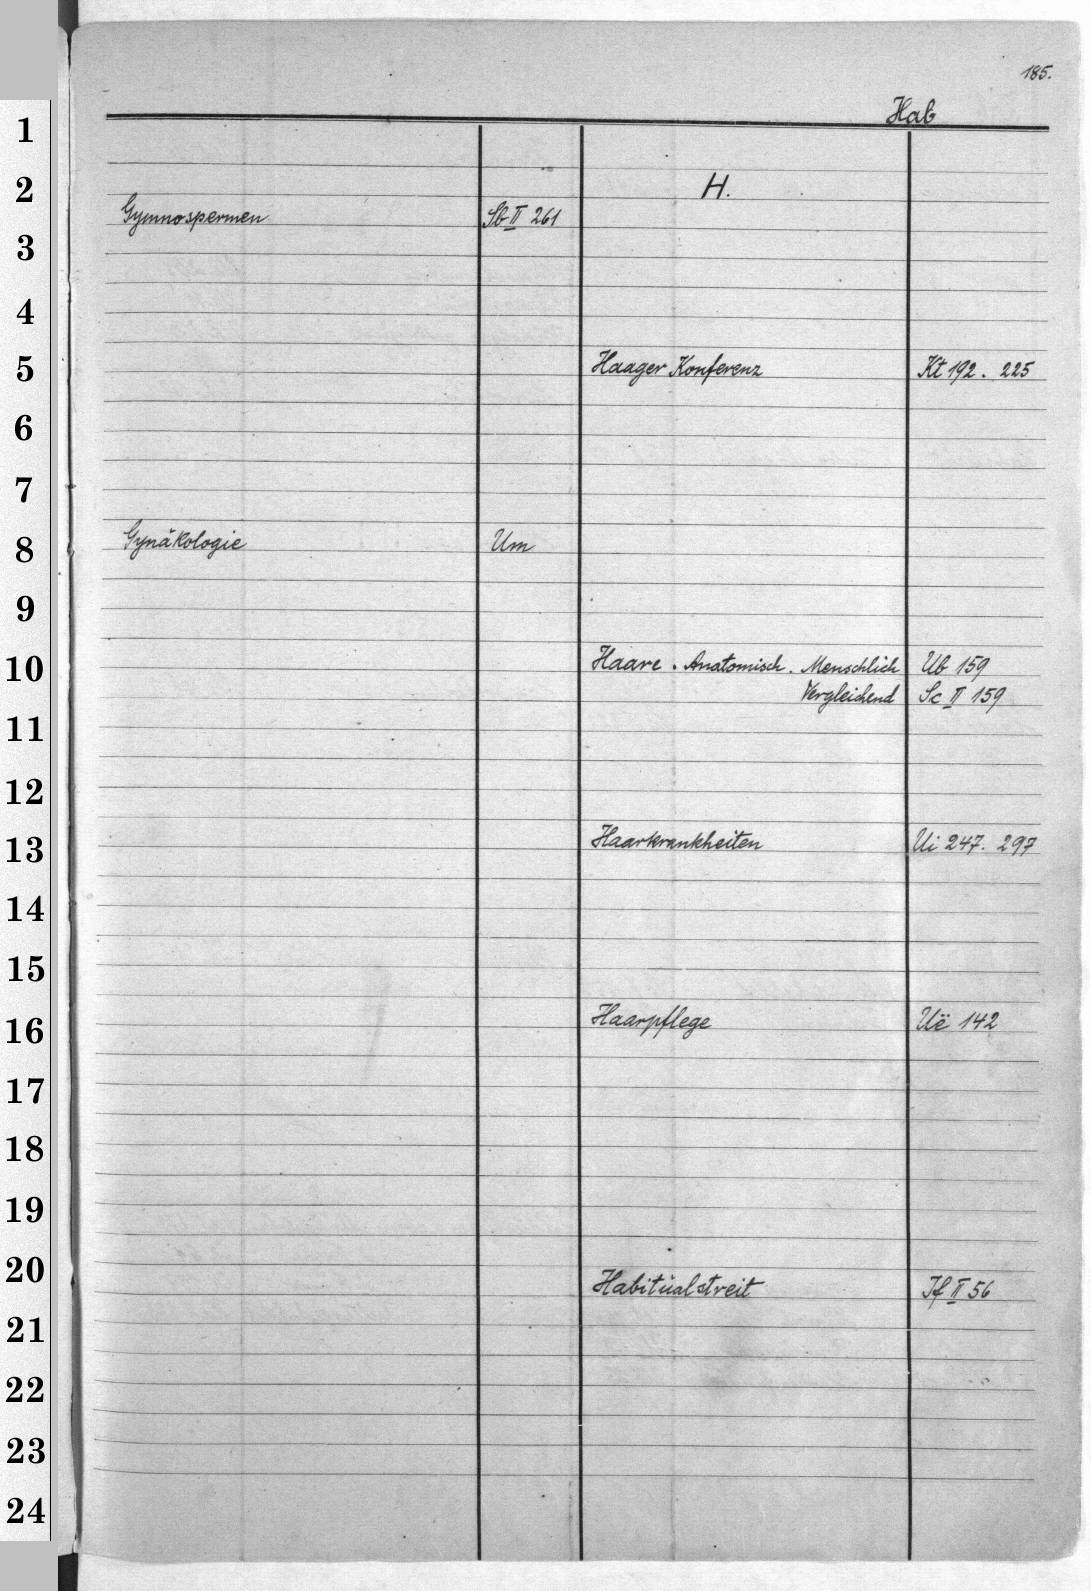 185.
Hab
H.
Gymnospermen Sb II 261
Haager Konferenz Kt 192. 225
Gynäkologie Um
Haare. Anatomisch. Menschlich Ub 159
Vergleichend Sc II 159
Haarkrankheiten Ui 247. 297
Haarpflege Uë 142
Habitüalstreit If II 56
1
2
3
4
5
6
7
8
9
10
11
12
13
14
15
16
17
18
19
20
21
22
23
24